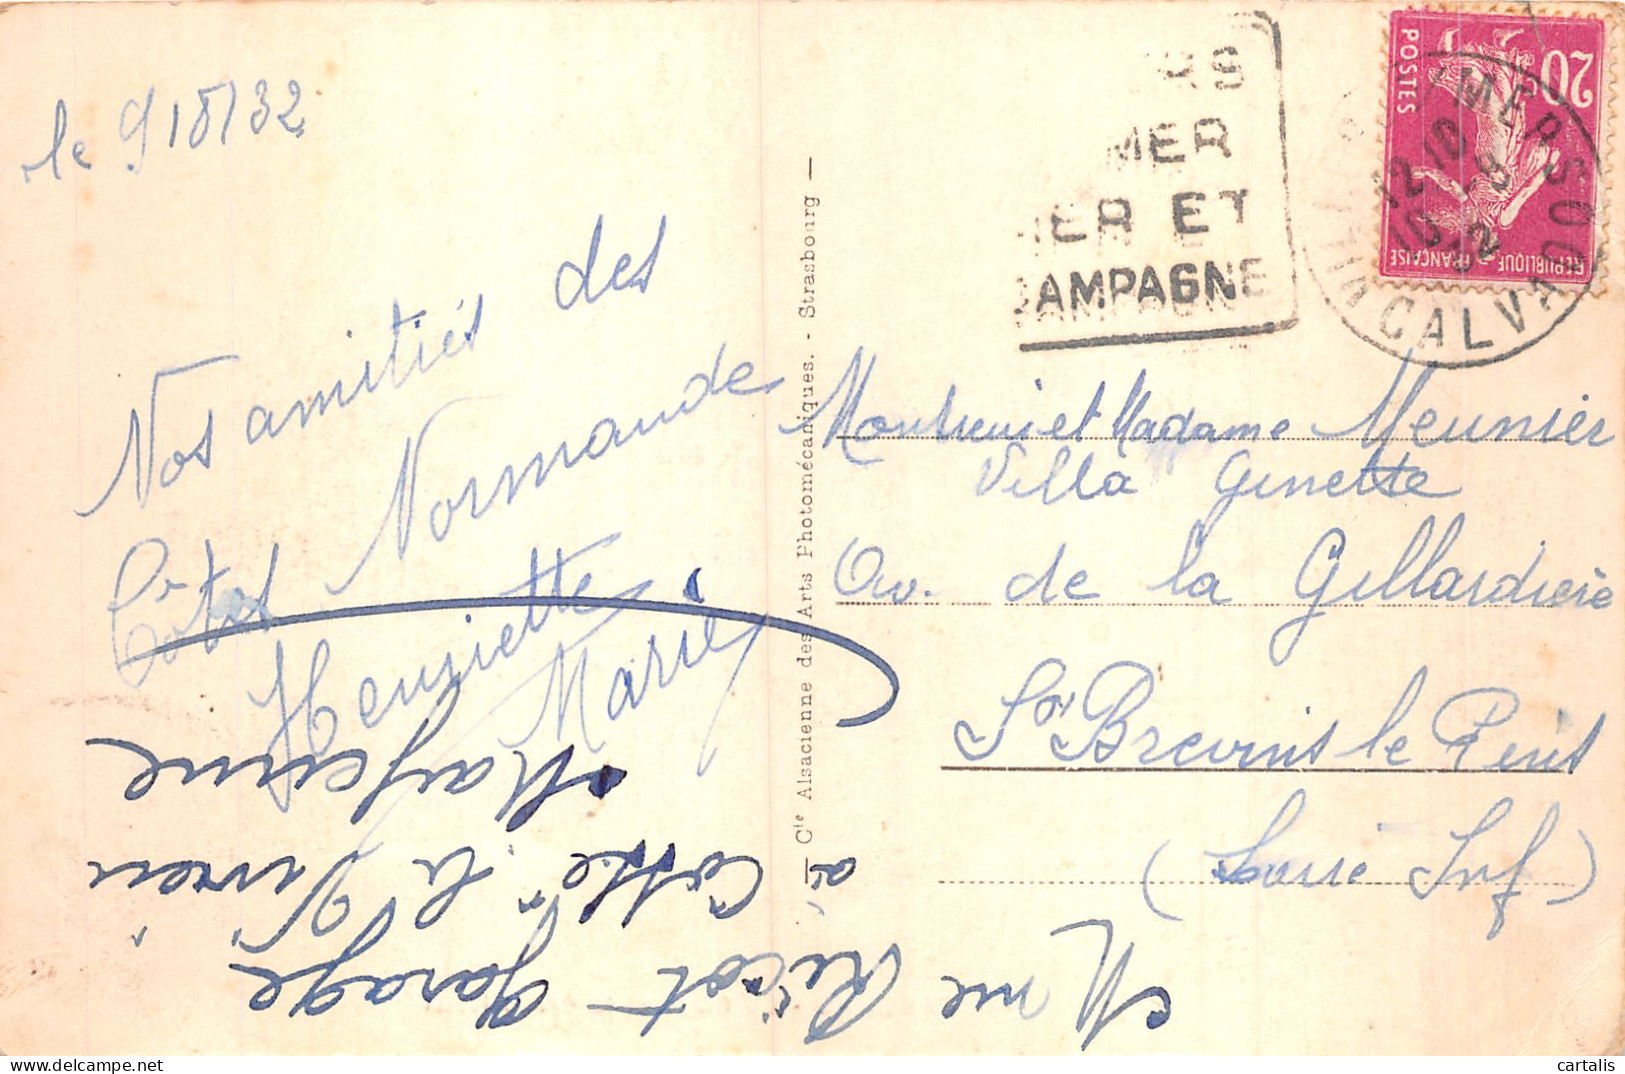 le 9/8/32
Nos amitiés des
Côtes Normande
Henriette
Marie
RS
MER
MER ET
CAMPAGNE
20c
POSTES
REPUBLIQUE FRANCAISE
S/MER
12 10
-8
32
CALVADOS
Cie Alsacienne des Arts Photomécaniques. - Strasbourg
Monsieur et Madame Meunier
Villa Ginette
Av. de la Gillardière
St Brevins le Pins
(Loire Inf)
Mme Ricot Garage
à Cossé la Vivien
Mayenne
cartalis